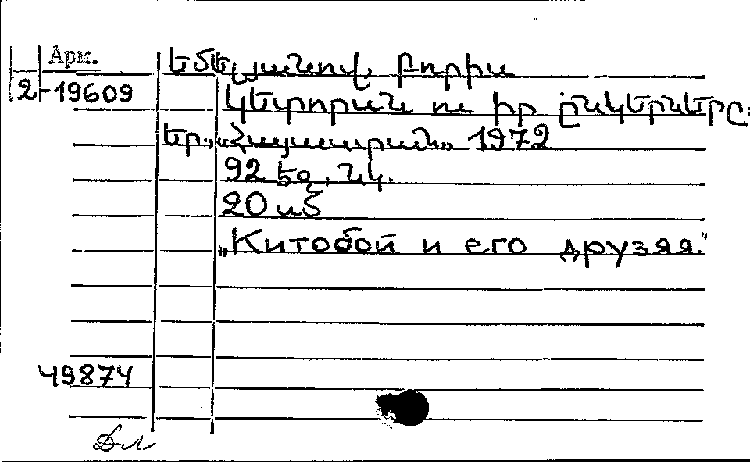 Арм.
2-19609
Եմելյանով, Բորիս
Կետորսան ու իր ընկերները:
Եր., «Հայաստան», 1972
92 էջ, նկ.
20 սմ
„Китобой и его друзяя."
49874